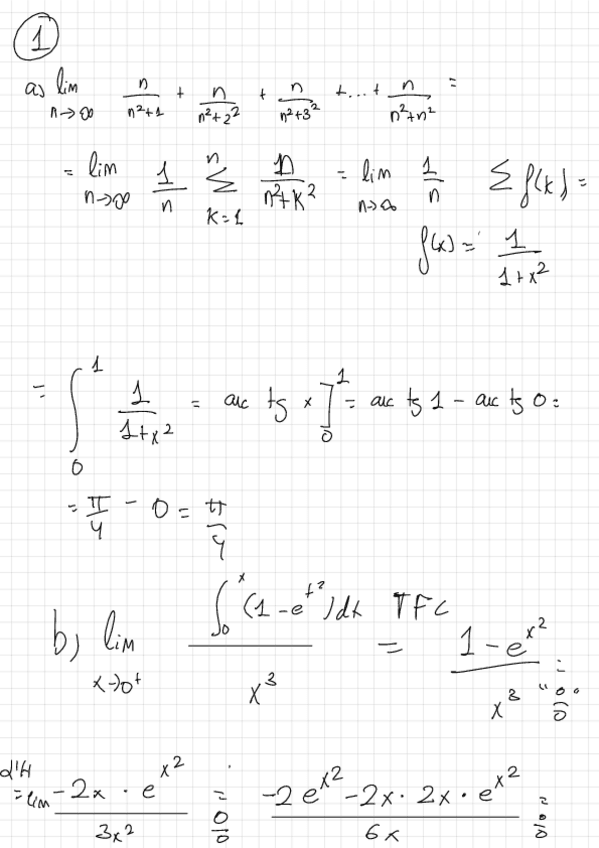 1
a) lim n→∞ n/(n²+1) + n/(n²+2²) + n/(n²+3²) + ... + n/(n²+n²) =
= lim n→∞ 1/n ∑ k=1 n n/(n²+k²) = lim n→∞ 1/n ∑ f(k) =
f(x) = 1/(1+x²)
= ∫₀¹ 1/(1+x²) = arc tg x ]₀¹ = arc tg 1 - arc tg 0 =
= π/4 - 0 = π/4
b) lim x→0⁺ ∫₀ˣ (1-e^t²)dt / x³ TFC = (1-e^x²)/x³ = "0/0"
d'H = lim (-2x · e^x²)/(3x²) = 0/0 (-2e^x² - 2x · 2x · e^x²)/(6x) = 0/0